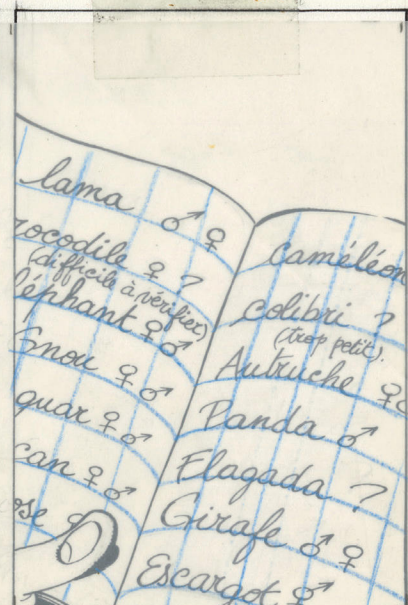 lama ♂ ♀
rocodile ♀ ?
(difficile à vérifier)
léphant ♀ ♂
Gnou ♀ ♂
guar ♀ ♂
can ♀ ♂
ose
caméléon
colibri ?
(trop petit).
Autruche ♀
Panda ♂
Elagada ?
Girafe ♂ ♀
Escargot ⚥